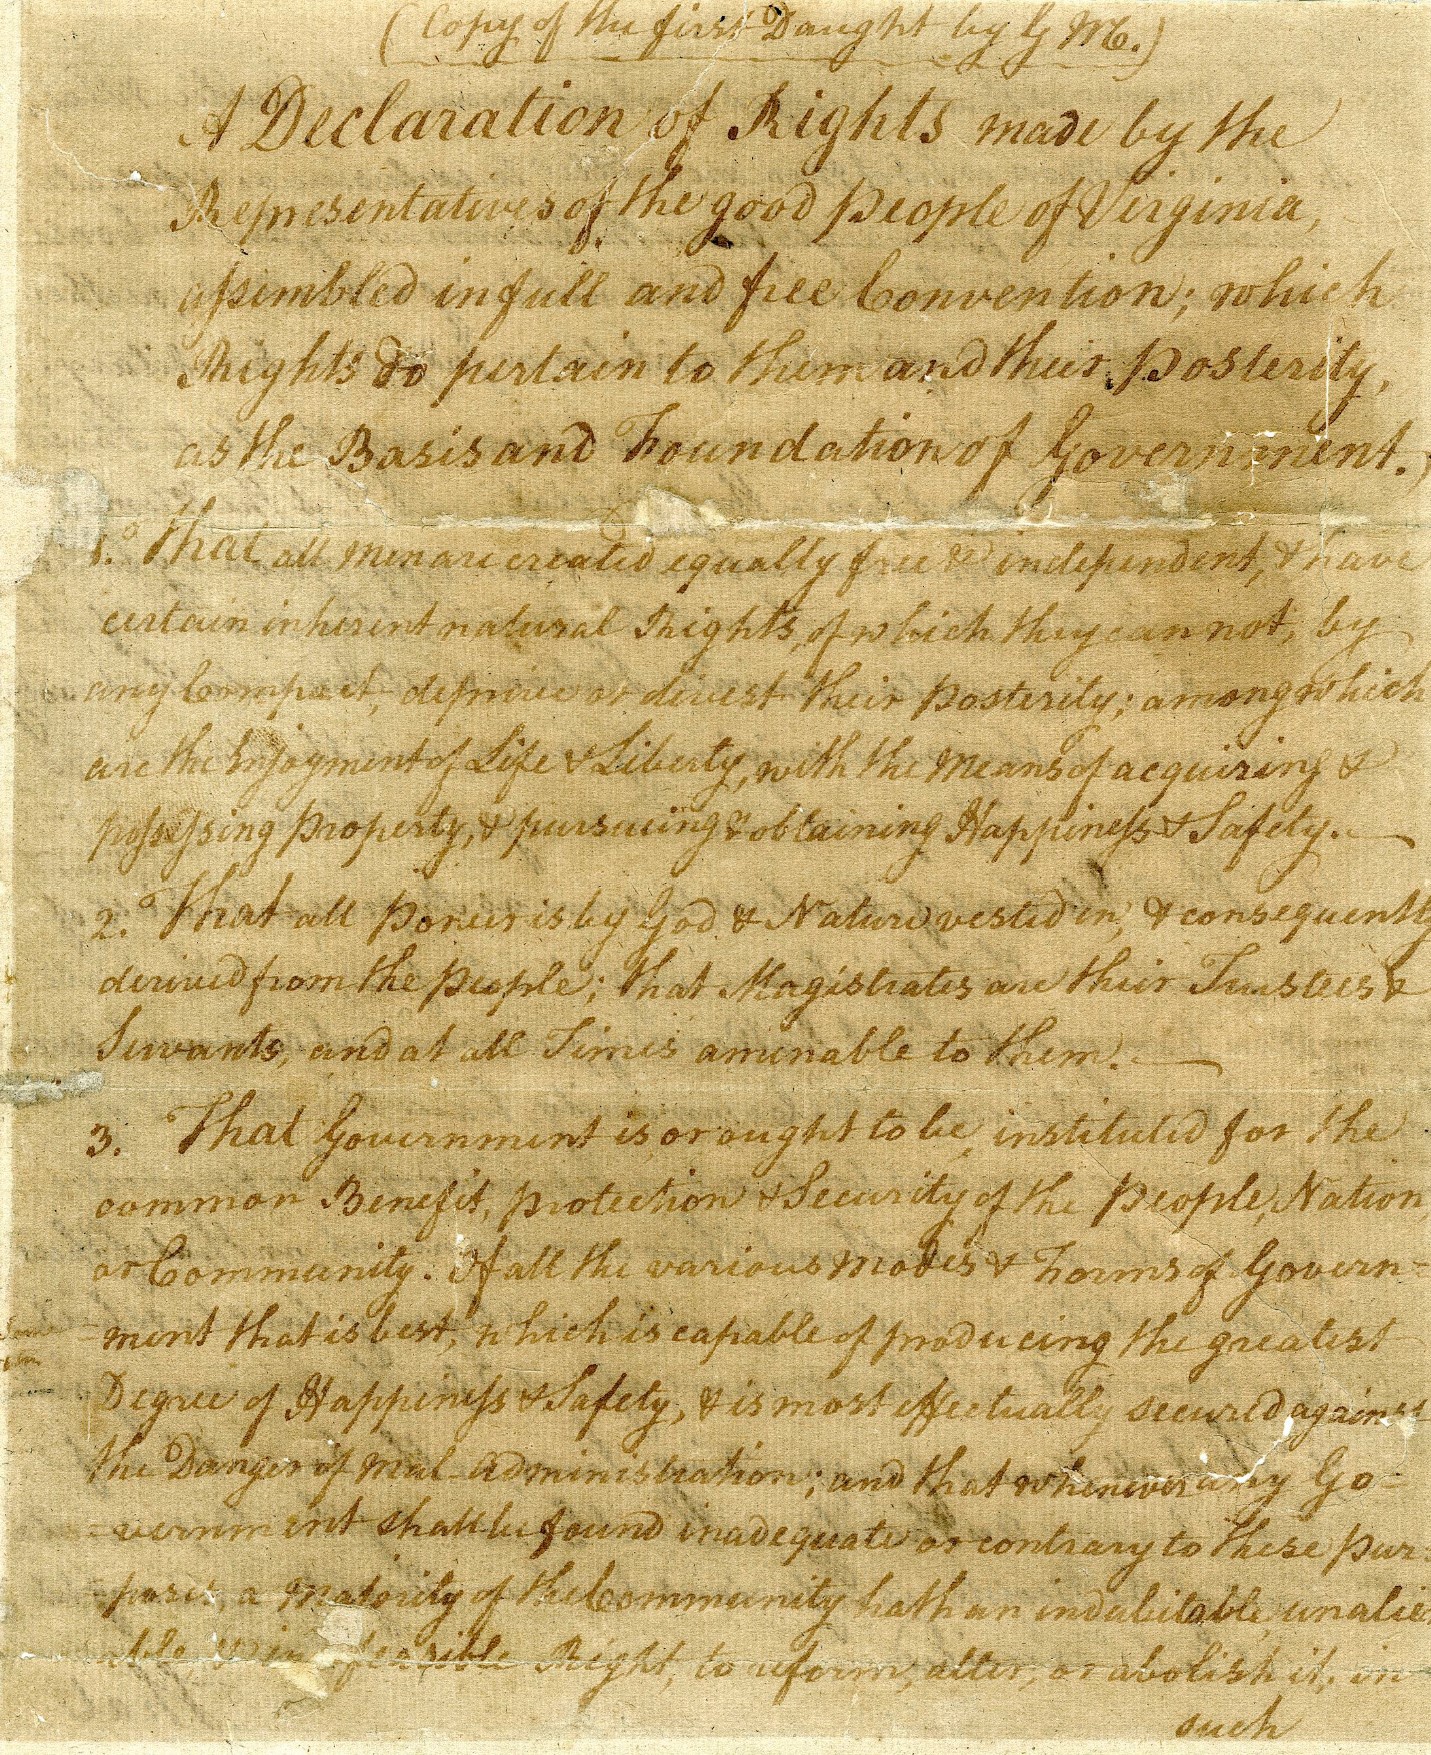 (Copy of the first Daught by G M.)
A Declaration of Rights made by the
Representatives of the good people of Virginia,
assembled in full and free Convention; which
Rights do pertain to them and their posterity,
as the Basis and Foundation of Government.
1.º That all Men are created equally free & independent, & have
certain inherent natural Rights, of which they can not, by
any Compact, deprive or divest their posterity; among which
are the Enjoyment of Life & Liberty, with the Means of acquiring &
possessing property, & pursuing & obtaining Happiness & Safety.
2.º That all power is by God & Nature vested in, & consequently
derived from the people; that Magistrates are their Trustees &
Servants, and at all Times amenable to them.
3. That Government is, or ought to be, instituted for the
common Benefit, protection & Security of the people, Nation,
or Community. Of all the various Modes & Forms of Govern=
=ment that is best, which is capable of producing the greatest
Degree of Happiness & Safety, & is most effectually secured against
the Danger of mal-administration; and that whenever any Go=
=vernment shall be found inadequate or contrary to these pur=
poses, a Majority of the Community hath an indubitable, unalien
able, & indefeasible Right, to reform, alter, or abolish it, in
such